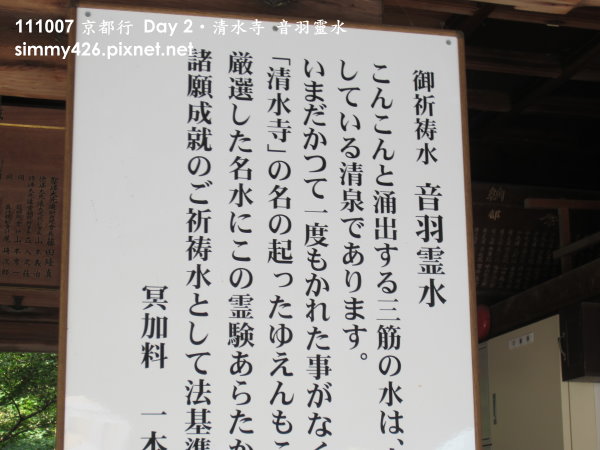 111007 京都行 Day 2・清水寺 音羽靈水
simmy426.pixnet.net
御祈祷水 音羽霊水
こんこんと涌出する三筋の水は、
している清泉であります。
いまだかつて一度もかれた事がなく
「清水寺」の名の起ったゆえんもこ
厳選した名水にこの霊験あらたか
諸願成就のご祈祷水として法基準
冥加料 一本